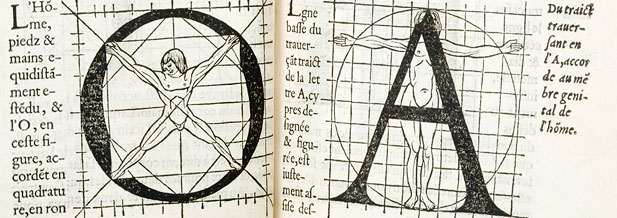 L'Hõ-
me,
piedz &
mains e-
quidistã-
ment e-
stẽdu, &
l'O, en
ceste fi-
gure, ac-
cordẽt en
quadratu
re, en ron
O
Lgne
basse du
trauer-
çãt traict
de la let
tre A, cy
pres de-
signée
& figu-
rée, est
iuste-
ment as-
sise des-
A
Du traict
trauer-
sant en
l'A, accor
de au mẽ
bre geni-
tal de
l'hõme.